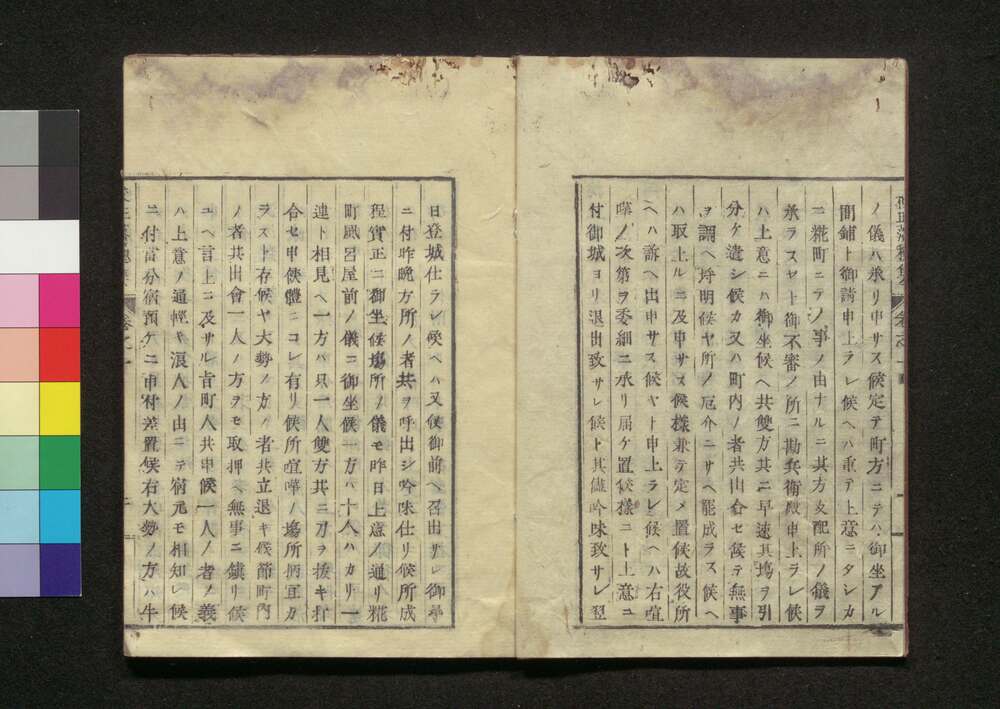 ノ儀ハ承リ申サス候定テ町方ニテハ御坐アル
間鋪ト御請申上ラレ候ヘハ重テ上意ニタシカ
ニ糀町ニテノ事ノ由ナルニ其方支配所ノ儀ヲ
承ラスヤト御不審ノ所ニ勘兵衛殿申上ラレ候
ハ上意ニハ御坐候ヘ共雙方其ニ早速其塲ヲ引
分ケ遣シ候カ又ハ町内ノ者共出合セ候テ無事
ヲ調ヘ埒明候ヤ所ノ厄介ニサヘ罷成ラス候ヘ
ハ取上ルニ及申サス候様兼テ定メ置候故役所
ヘハ訴ヘ出申サス候ヤト申上ラレ候ヘハ右喧
嘩ノ次第ヲ委細ニ承リ届ケ置候様ニト上意ニ
付御城ヨリ退出致サレ候ト其儘吟味致サレ翌
日登城仕ラレ候ヘハ又候御前ヘ召出サレ御尋
ニ付昨晩方所ノ者共ヲ呼出シ吟味仕リ候所成
程實正ニ御坐候塲所ノ儀モ昨日上意ノ通リ糀
町風呂屋前ノ儀ニ御坐候一方ハ十人ハカリ一
連ト相見ヘ一方ハ只一人雙方共ニ刀ヲ抜キ打
合セ申候體ニコレ有リ候所喧嘩ノ塲所柄耳カ
ラスト存候ヤ大勢ノ方ノ者共立退キ候節町内
ノ者共出會一人ノ方ヲモ取押ヘ無事ニ鎮リ候
ユヘ言上ニ及サル旨町人共申候一人ノ者ノ義
ハ上意ノ通輕キ浪人ノ由ニテ宿元モ相知レ候
ニ付當分宿預ケニ申付差置候右大勢ノ方ハ牛